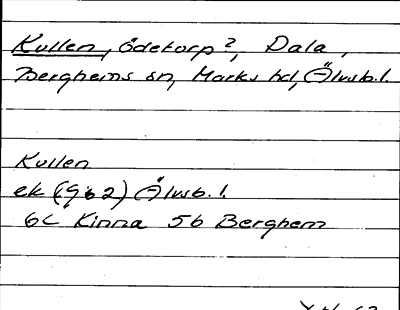 Kullen, ödetorp?, Dala,
Berghems sn, Marks hd, Älvsb. l.
Kullen
ek (962) Älvsb. l.
6c Kinna 5b Berghem